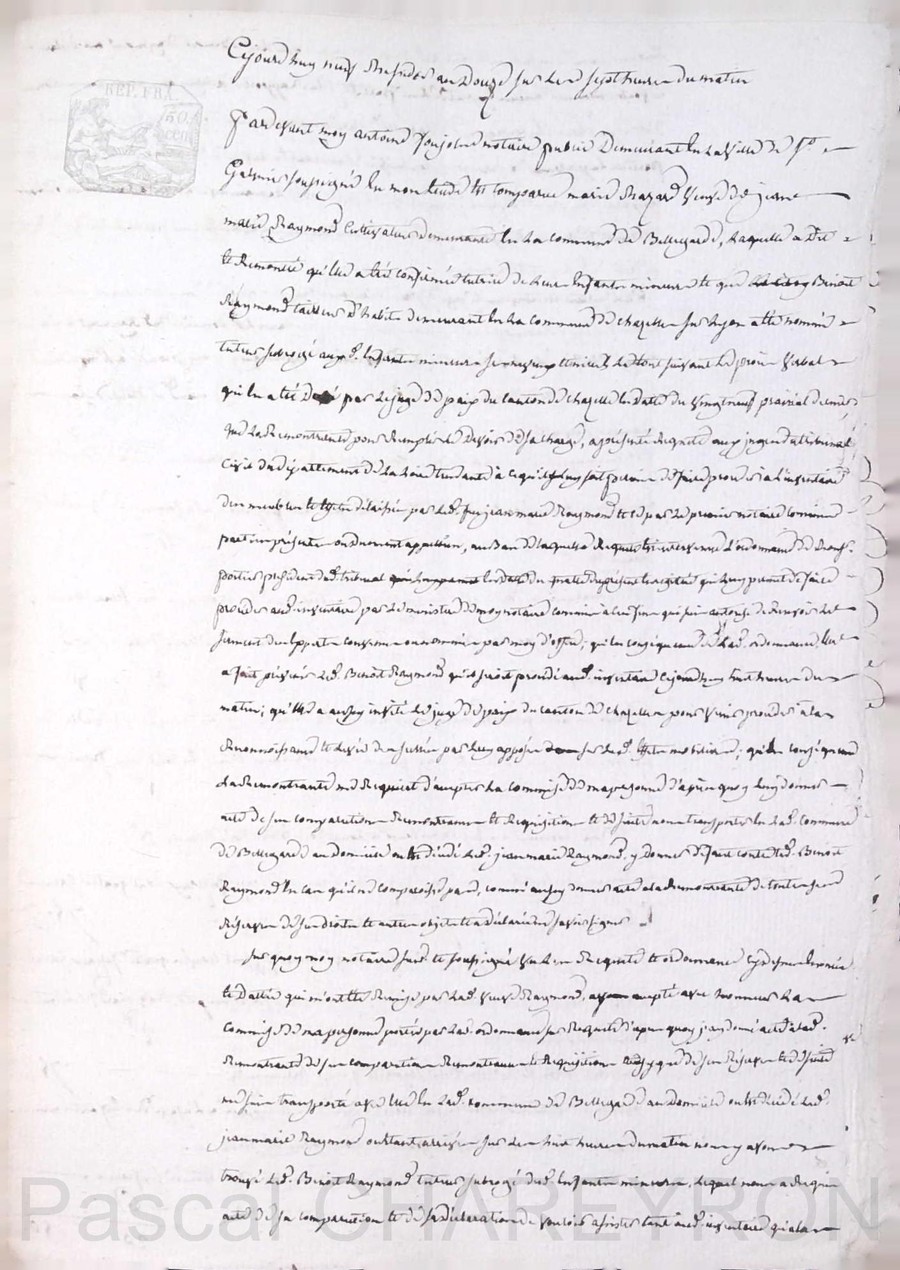 REP. FRA.
50 cen
Cejourdhuy neuf Messidor an Douze sur les sept heures du matin
Pardevant moy antoine notaire public Demeurant en la ville de St
Galmier soussigné en mon etude est comparue marie veuve de jean
marie Raymond Cultivateur demeurante en la commune de Bellegarde, laquelle a Dit
et Remontré qu'elle a été confirmée tutrice de leurs Enfants mineurs et que Benoit
Raymond tailleur d'habits demeurant en la commune de chazelle sur Lyon a été nommé
tuteur subrogé auxd. Enfants mineurs le tout suivant le procès verbal
qui en a été par le juge de paix du canton de chazelle en Date du vingt neuf prairial dernier
que la Remontrante pour Remplir le Devoir de sa charge, a présenté Requete aux juges du tribunal
Civil du département de la Loire tendante à ce qu'il luy soit permis de faire proceder à l'inventaire
des meubles et effets délaissés par led. feu jean marie Raymond et ce par le premier notaire commis
partie présente ou duement appellée, au bas de laquelle Requete est intervenue l'ordonnance de
président dud. tribunal en date du quatre du présent qui luy permet de faire
proceder aud. inventaire par le ministere de moy notaire commis a cet effet qui suis autorisé de Recevoir le
serment des experts convenus ou nommés par moy d'office; qu'en conséquence de lad. ordonnance Elle
a fait prévenir led. Benoit Raymond qu'il seroit procédé aud. inventaire Cejourdhuy huit heures du
matin; qu'elle a aussy invité le juge de paix du canton de chazelle pour venir proceder à la
Reconnoissance et levée des scellés par luy apposés sur led. effets mobiliers; qu'en conséquence
La Remontrante me Requiert d'accepter la commission de ma personne d'après quoy luy donner
acte de sa comparution Remontrance et Requisition et de suite nous transporter en lad. commune
de Bellegarde au domicile ou est décédé led. jean marie Raymond, y donner défaut contre led. Benoit
Raymond en cas qu'il ne comparoisse pas, comme aussy donner acte a la Remontrante de toutes ses
Réserves de ses droits et autres objets et a déclaré ne savoir signer
Sur quoy moy notaire susd. et soussigné vu les Requete et ordonnance cydessus
et Dattée qui m'ont été Remises par lad. veuve Raymond, accepté avec honneur la
Commission de ma personne portée par lad. ordonnance sur Requete d'après quoy j'ay donné acte a lad.
Remontrante de sa comparution Remontrance et Requisition que de ses Réserves et de suite
me suis transporté avec elle en lad. commune de Bellegarde au Domicile ou est décédé led.
jean marie Raymond ou étant arrivés sur les huit heures du matin nous y avons
trouvé led. Benoit Raymond tuteur subrogé desd. Enfants mineurs, lequel nous a Requis
acte de sa comparution et de sa déclaration de vouloir assister tant aud. inventaire qu'a la
Pascal CHARLEYRON